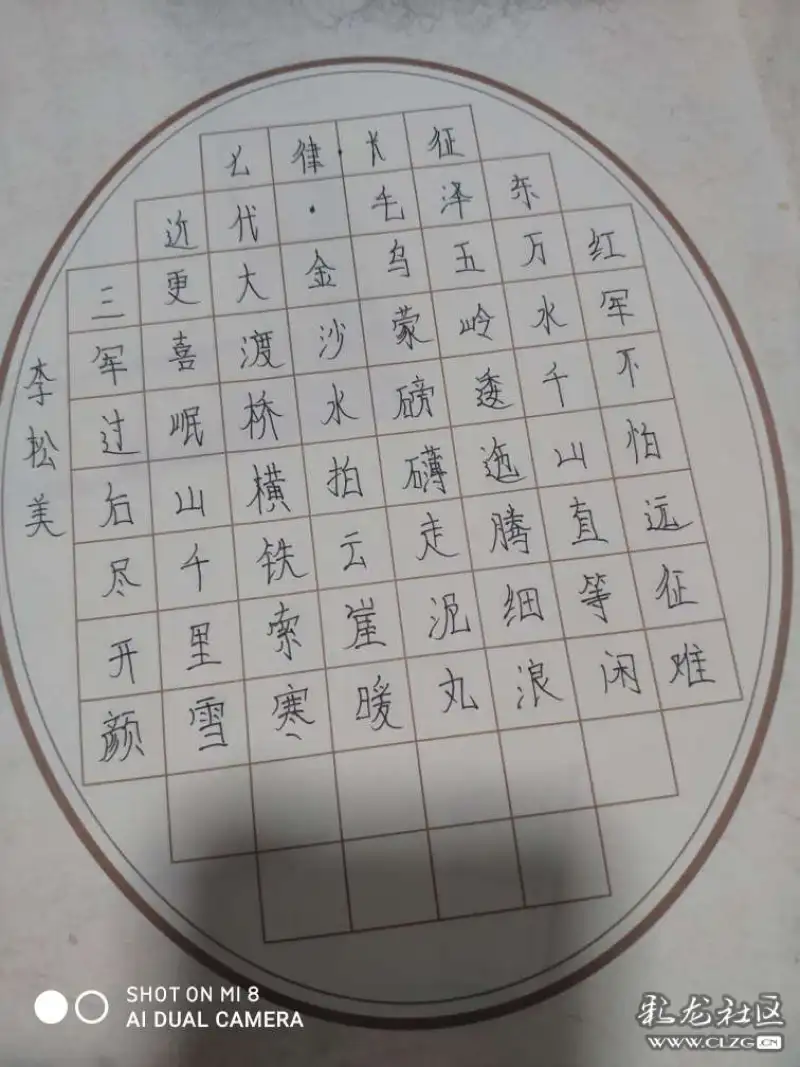 七律·长征
近代·毛泽东
红军不怕远征难
万水千山直等闲
五岭逶迤腾细浪
乌蒙磅礴走泥丸
金沙水拍云崖暖
大渡桥横铁索寒
更喜岷山千里雪
三军过后尽开颜
李松美
SHOT ON MI 8
AI DUAL CAMERA
彩龙社区
WWW.CLZG.CN